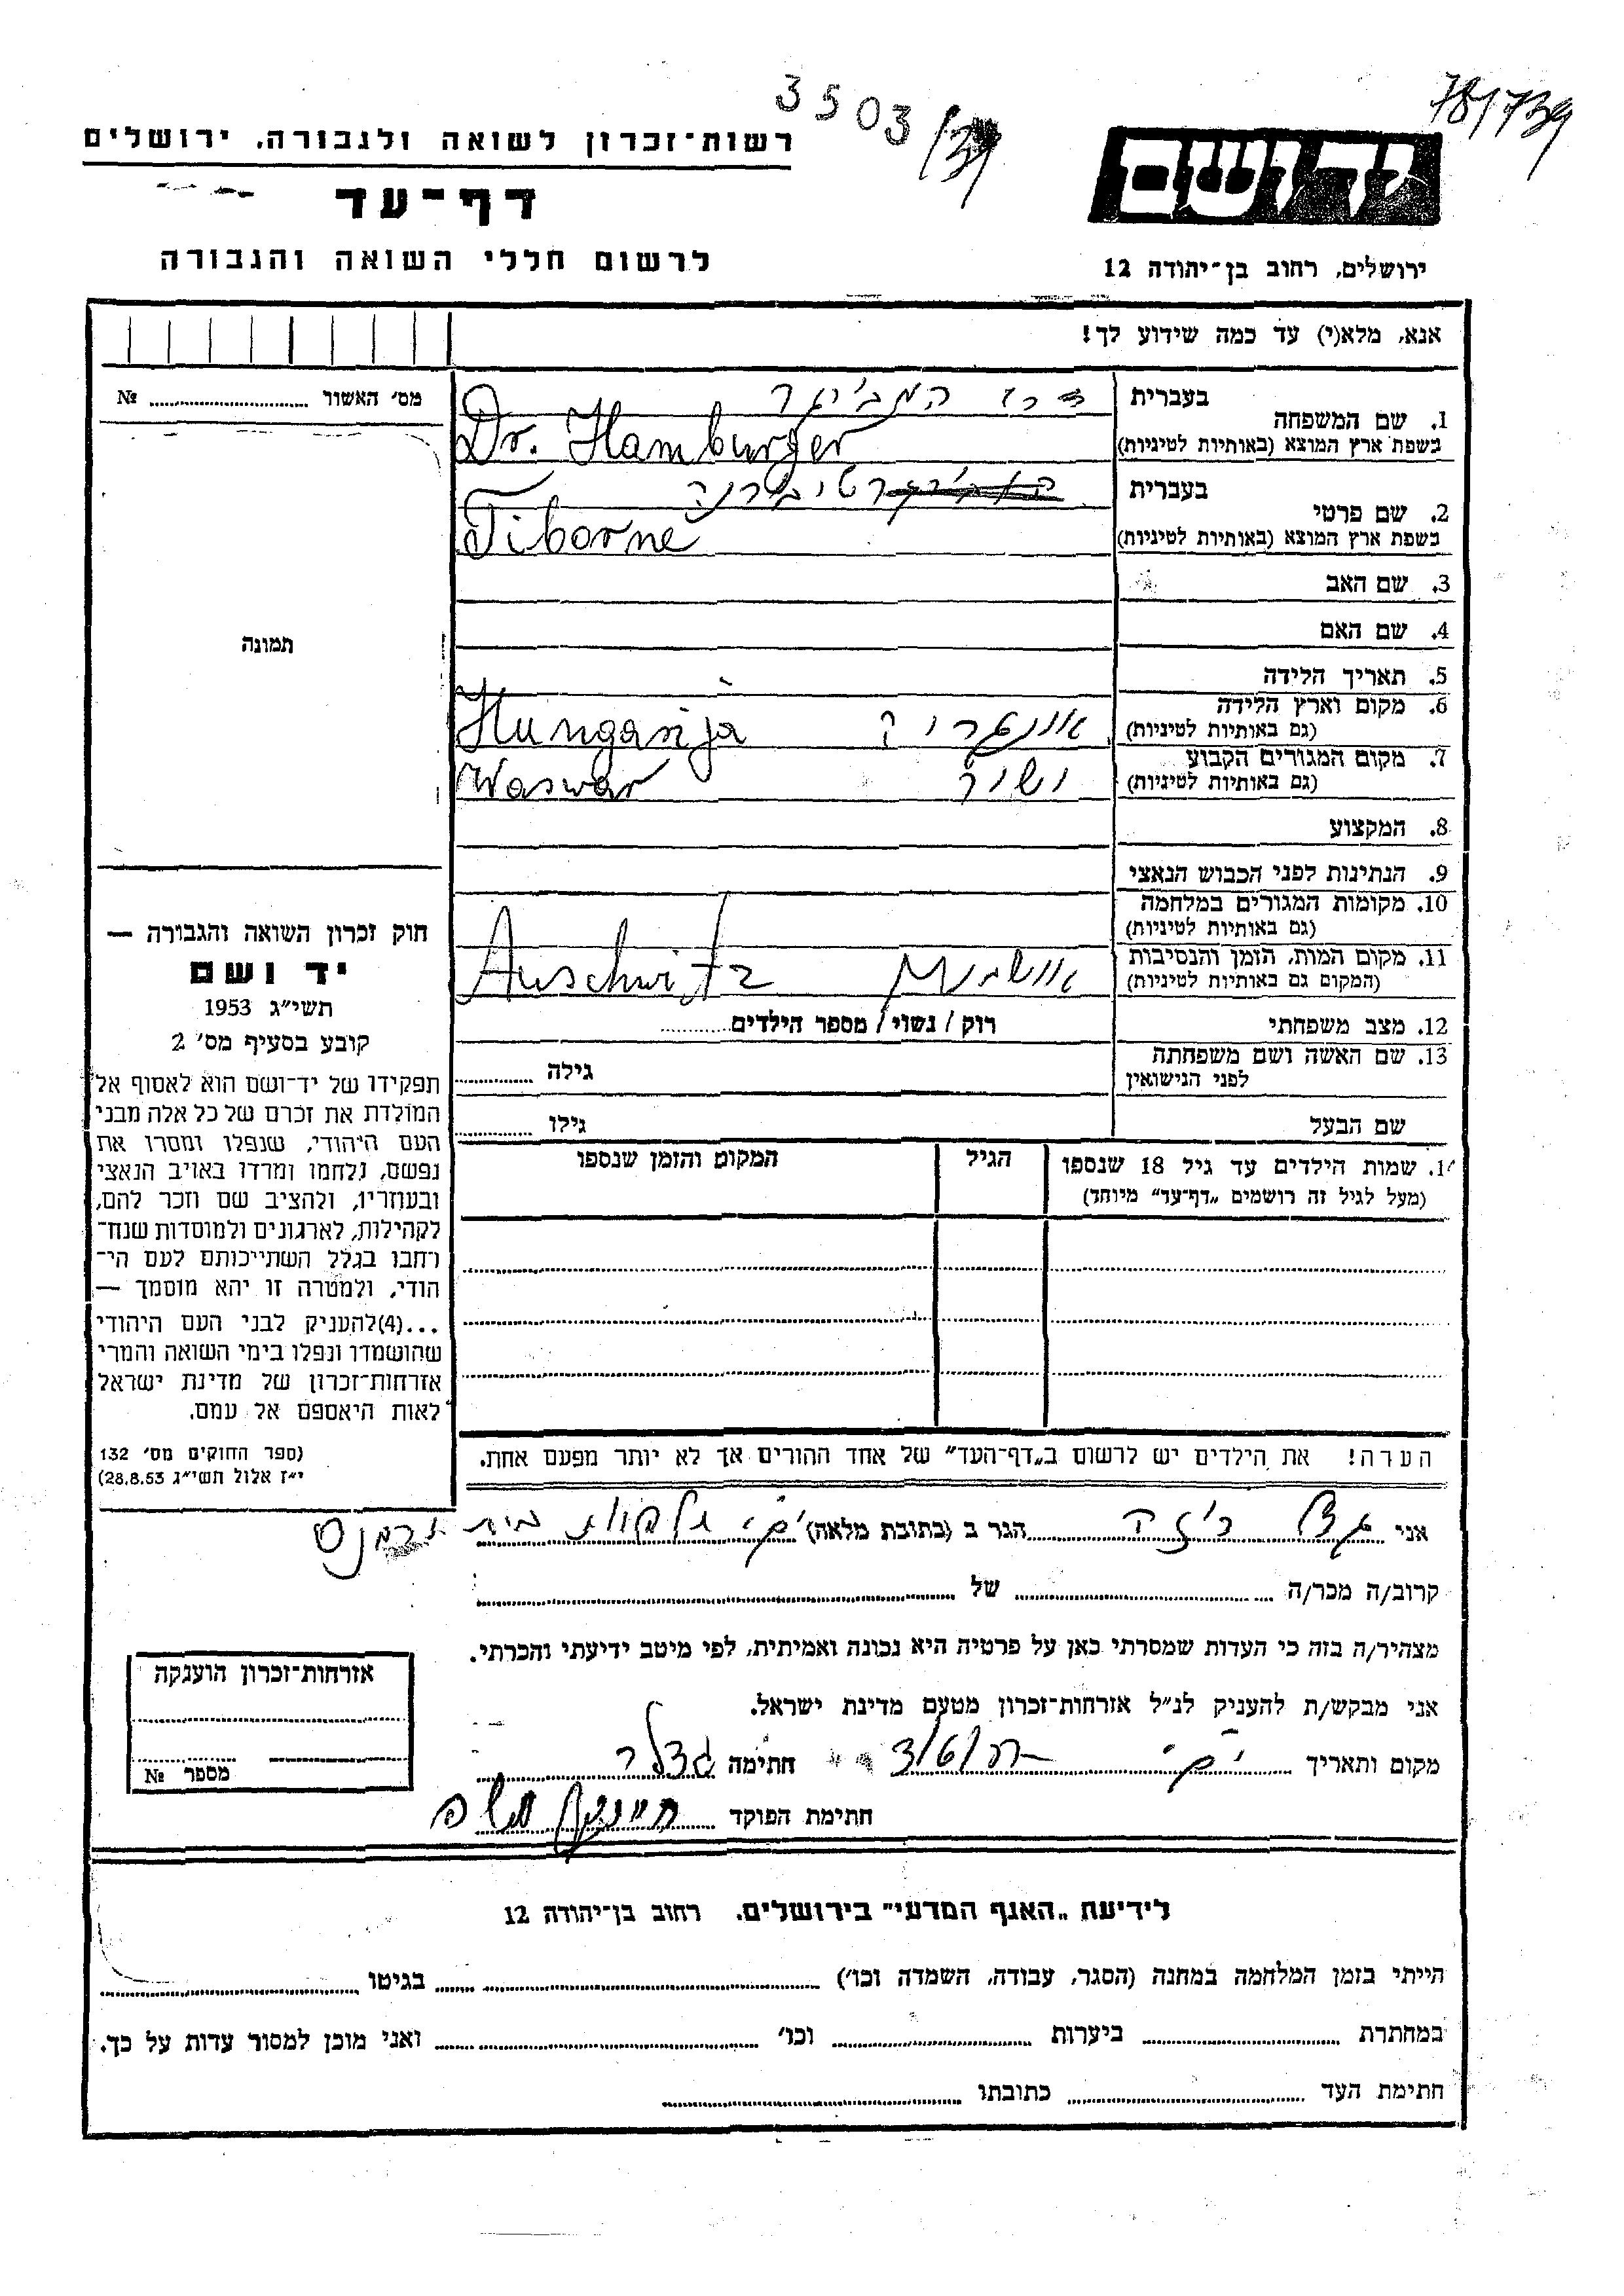 3503/39
781739
רשות־זכרון לשואה ולגבורה, ירושלים
יד ושם
דף־עד
לרשום חללי השואה והגבורה
ירושלים, רחוב בן־יהודה 12
אנא, מלא(י) עד כמה שידוע לך!
מס׳ האשור № 
תמונה
חוק זכרון השואה והגבורה —
יד ושם
תשי״ג 1953
קובע בסעיף מס׳ 2
תפקידו של יד־ושם הוא לאסוף אל
המולדת את זכרם של כל אלה מבני
העם היהודי, שנפלו ומסרו את
נפשם, נלחמו ומרדו באויב הנאצי
ובעוזריו, ולהציב שם וזכר להם,
לקהילות, לארגונים ולמוסדות שנח־
רחבו בגלל השתייכותם לעם הי־
הודי, ולמטרה זו יהא מוסמך —
...(4)להעניק לבני העם היהודי
שהושמדו ונפלו בימי השואה והמרי
אזרחות־זכרון של מדינת ישראל
לאות היאספם אל עמם.
(ספר החוקים מס׳ 132
י״ז אלול תשי״ג 28.8.53)
1. שם המשפחה
בעברית המבורגר
בשפת ארץ המוצא (באותיות לטיניות) Dr. Hamburger
2. שם פרטי
בעברית טיבורנה
בשפת ארץ המוצא (באותיות לטיניות) Tiborne
3. שם האב
4. שם האם
5. תאריך הלידה
6. מקום וארץ הלידה
(גם באותיות לטיניות) אונגריה Hungarija
7. מקום המגורים הקבוע
(גם באותיות לטיניות) ושור Waswar
8. המקצוע
9. הנתינות לפני הכבוש הנאצי
10. מקומות המגורים במלחמה
(גם באותיות לטיניות)
11. מקום המות, הזמן והנסיבות
(המקום גם באותיות לטיניות) אושויץ Auschwitz
12. מצב משפחתי רוק / נשוי / מספר הילדים
13. שם האשה ושם משפחתה
לפני הנישואין גילה
שם הבעל גילו
14. שמות הילדים עד גיל 18 שנספו הגיל המקום והזמן שנספו
(מעל לגיל זה רושמים „דף־עד״ מיוחד)
הערה! את הילדים יש לרשום ב„דף־העד״ של אחד ההורים אך לא יותר מפעם אחת.
אני הגר ב (כתובת מלאה) בית
קרוב/ה מכר/ה של
מצהיר/ה בזה כי העדות שמסרתי כאן על פרטיה היא נכונה ואמיתית, לפי מיטב ידיעתי והכרתי.
אני מבקש/ת להעניק לנ״ל אזרחות־זכרון מטעם מדינת ישראל.
מקום ותאריך חתימה
חתימת הפוקד
אזרחות־זכרון הוענקה
מספר №
לידיעת „האגף המדעי״ בירושלים, רחוב בן־יהודה 12
הייתי בזמן המלחמה במחנה (הסגר, עבודה, השמדה וכו׳) בגיטו
במחתרת ביערות וכו׳ ואני מוכן למסור עדות על כך.
חתימת העד כתובתו